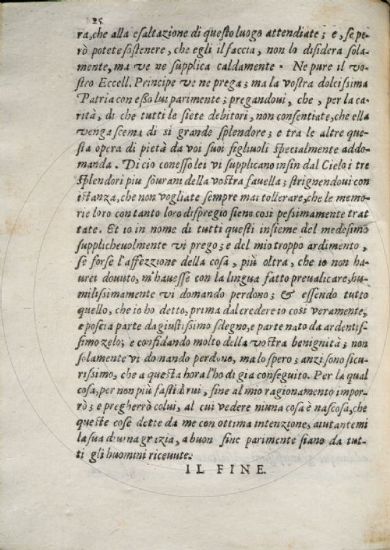 25
ra, che alla esaltazione di questo luogo attendiate; e, se pe-
rò potete sostenere, che egli il faccia, non lo disidera sola-
mente, ma ve ne supplica caldamente. Ne pure il vo-
stro Eccell. Principe ve ne prega; ma la vostra dolcissima
Patria con esso lui parimente; pregandoui, che, per la ca-
rità, di che tutti le siete debitori, non consentiate, che ella
venga scema di si grande splendore; e tra le altre que-
sta opera di pietà da voi suoi figliuoli spezialmente addo-
manda. Di cio con esso lei vi supplicano insin dal Cielo i tre
splendori piu sourani della vostra fauella; strignendoui con
istanza, che non vogliate sempre mai tollerare, che le memo-
rie loro con tanto loro dispregio sieno cosi pessimamente trat
tate. Et io in nome di tutti questi insieme del medesimo
supplicheuolmente vi prego; e del mio troppo ardimento,
se forse l'affezzione della cosa, più oltra, che io non ha-
urei douuto, m'hauesse con la lingua fatto preualicare, hu-
milissimamente vi domando perdono; & essendo tutto
quello, che io ho detto, prima dal credere io così veramente,
e poscia parte da giustissimo sdegno, e parte nato da ardentis-
simo zelo; e confidando molto della vostra benignità; non
solamente vi domando perdono, ma lo spero; anzi sono sicu-
rissimo, che a questa hora l'ho di già conseguito. Per la qual
cosa, per non più fastidirui, fine al mio ragionamento impor-
rò; e pregherrò colui, al cui vedere niuna cosa è nascosa, che
queste cose dette da me con ottima intenzione, aiutantemi
la sua diuina grazia, a buon fine parimente siano da tut-
ti gli huomini riceuute.
IL FINE.